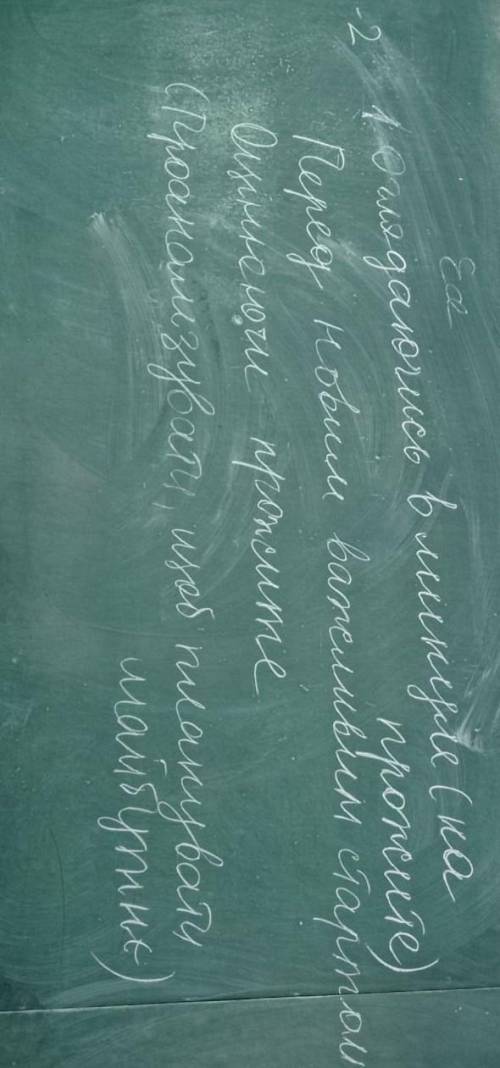 Ел
-2 1 Оглядаючись в минуле (на
прожите)
Перед новим важливим стартом
Оцінюючи прожите
(Проаналізувати, щоб планувати
майбутнє)